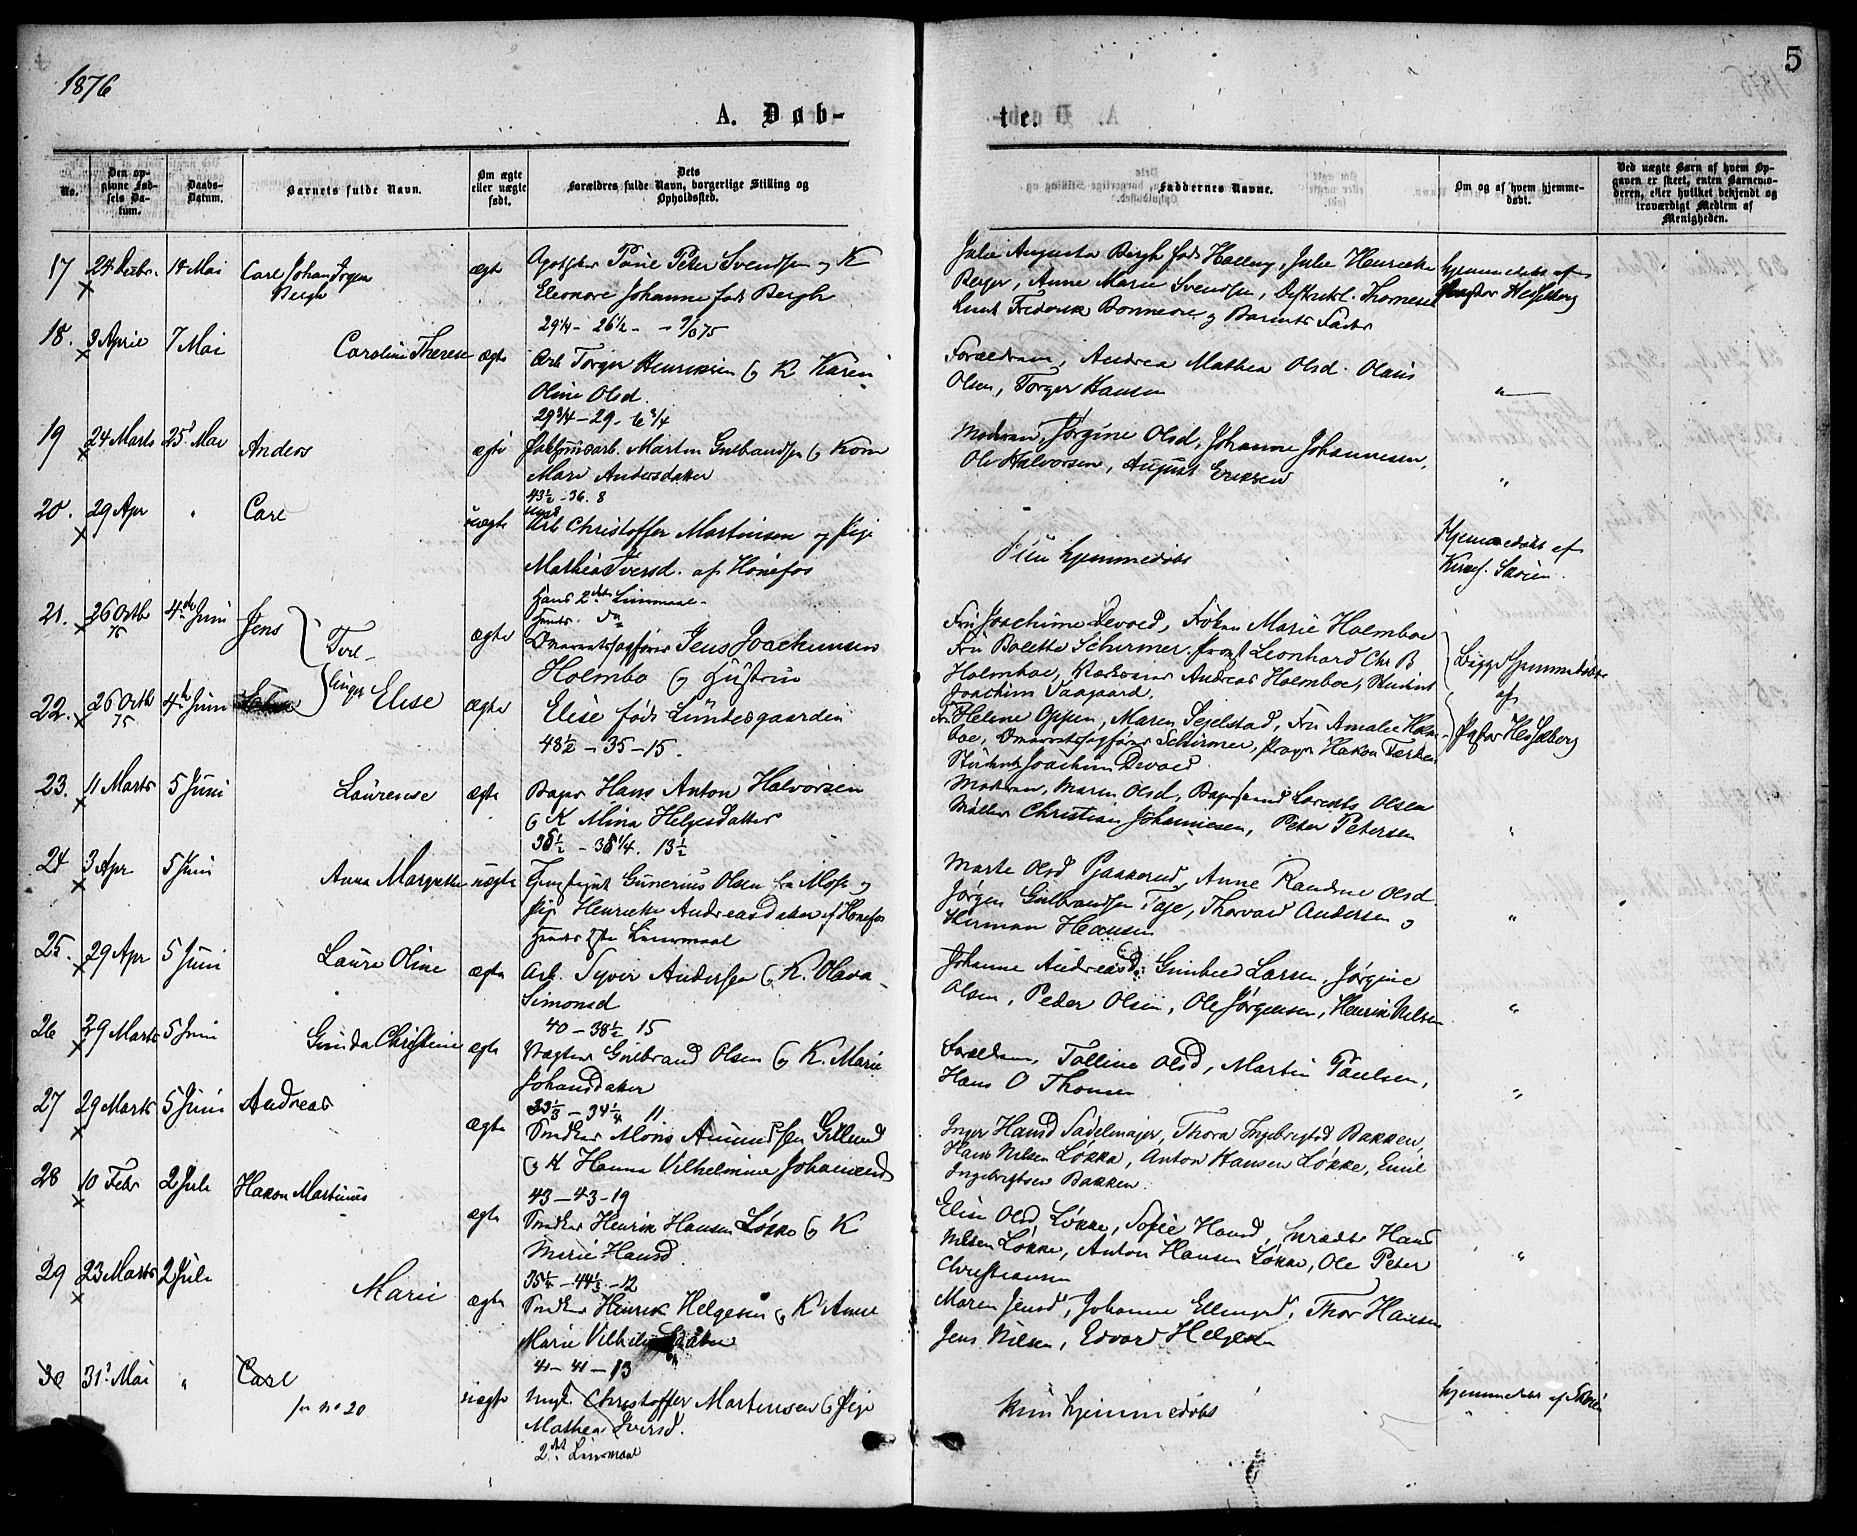 1876
5
A. Døb-
te.
No.
Den op-
givne Fød-
sels Da-
tum.
Daabs-
Datum.
Barnets fulde Navn.
Om ægte
eller uægte
født.
Dets
Forældres fulde Navn, borgerlige Stilling og
Opholdssted.
Faddernes Navne.
Om og af hvem hjemme-
døbt.
Ved uægte Børn af hvem Op-
gaven er skeet, enten Barnemo-
deren, eller hvilket bekjendt og
troværdigt Medlem af
Menigheden.
17 24 Decbr. 14 Mai Carl Johan Jrgen
Bergh
ægte
Peter Svendsen og K
Eleonore Johanne født Bergh
29¼ - 26½ -
Julie Augusta Bergh født Julie Henriette
Berger, Anne Marie Svendsen, Distriktl. Thomesen
Knut Frederik Bonnevie og Barnets Fader
Hjemmedøbt af
Pastor Hesselberg
18. 3 April 7 Mai Caroline Therese ægte
Arb. Torger Henriksen og K Karen
Oline Olsd.
29¾ - 29 - 6¾
Forældrene, Andrea Mathea Olsd. Olaus
Olsen, Torger Hansen
"
19 24 Marts 25 Mai Anders ægte
Martin Gulbrandsen og Kone
Mari Andersdatter
43½ - 36. 8
Moderen, Jørgine Olsd, Johanne Johannesen,
Ole Halvorsen, August Eriksen
"
20. 29 Apr " Carl uægte
Arb Christoffer Martinsen og Pige
Mathea Iversd. af Hønefos
Hans 2det Leiermaal
Hendes do
Kun hjemmedøbt
Hjemmedøbt af
Kirkes.
21. 26 Octb 75 4de Juni Jens
Tvil-
linger
ægte
Overretssagfører Jens Joachimsen
Holmbo og Hustru
Fru Joachime Devold, Frøken Marie Holmboe
Fru Bolette Schirmer. Leonhard Chr B
Holmboe, Andreas Holmboe, Student
Joachim Vaagaard.
Begge hjemmedøbte
af
Pastor Hesselberg
22. 26 Octb 75 4de Juni Elise ægte
Elise født Lundesgaarden
48½ - 35 - 15.
Fru Helene Oppen, Maren Sejelstad, Fru Amalie Holm-
boe, Overretssagfører Schirmer, Hakon
Student Joachim Devold
23. 11 Marts 5 Juni Laurense ægte
Bager Hans Anton Halvorsen
og K Mina Helgesdatter
13½
Moderen, Maren Olsd, Bagersvend Lorents Olsen
Møller Christian Johannesen, Peter Petersen
"
24 3 Apr 5 Juni Anna Margrethe uægte
Gunerius Olsen fra Moss og
Pige Henriette Andreasdatter af Hønefos
Hendes 1ste Leiermaal
Marte Olsd Anne Randine Olsd
Jørgen Gulbrandsen Thorvald Andersen og
Herman Hansen
"
25. 29 Apr 5 Juni Laura Oline ægte
Arb. Syver Andersen og K. Olava
Simonsd
40 - 38½ 15
Johanne Andreasd. Gunhild Larsen, Jørgine
Olsen, Peder Olsen, Ole Jørgensen, Henrik Nilsen
"
26 29 Marts 5 Juni Gunda Christine ægte
Vægter Gulbrand Olsen og K. Marie
Johansdatter
33⅓ - 34¼ 11
Forældrene, Tolline Olsd, Martin Paulsen,
Hans O Thomsen
"
27 29 Marts 5 Juni Andreas ægte
Snedker Mons Amundsen Gillund
og K Hanna Vilhelmine Johannesd
43 - 43 - 19
Inger Hansd Sadelmager, Thora Ingebrigtsd Bakken,
Hans Nilsen Løkka, Anton Hansen Løkke, Emil
Ingebrigtsen Bakken.
28 10 Febr 2 Juli Hakon Martinus ægte
Snedker Henrik Hansen Løkke og K
Marie Hansd
35¼ - 44½ - 12
Elise Olsd Løkke, Sofie Hansd, Hans
Nilsen Løkke, Anton Hansen Løkke, Ole Peter
Christiansen
"
29 23 Marts 2 Juli Marie ægte
Snedker Henrik Helgesen og K Anne
Marie
41 - 41 - 13
Maren Jensd, Johanne Ellingsd, Thor Hansen
Jens Nilsen, Edvard Helgesen
30 31 Mai " Carl
se no 20
uægte
Ungk. Christoffer Martinsen og Pige
Mathea Iversd.
2det Leiermaal
Kun hjemmedøbt
hjemmedøbt af